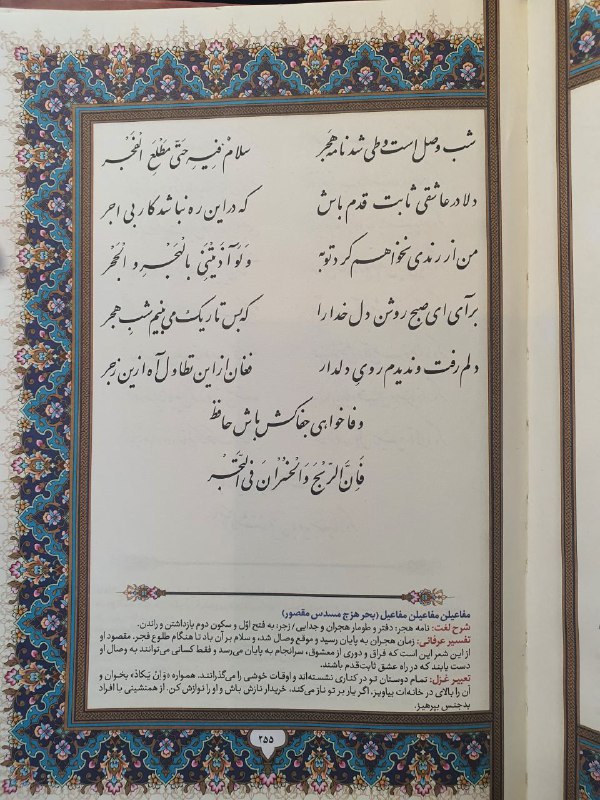 شب وصل است و طی شد نامه هجر سلامٌ فیهِ حَتّی مَطْلَعِ الْفَجْر
دلا در عاشقی ثابت قدم باش که در این ره نباشد کار بی اجر
من از رندی نخواهم کرد توبه وَلَوْ آذَیْتَنی بِالْهَجْرِ وَ الْحَجْر
برآی ای صبح روشن دل خدا را که بس تاریک می‌بینم شبِ هجر
دلم رفت و ندیدم رویِ دلدار فغان از این تطاول آه ازین زجر
وفا خواهی جفاکش باش حافظ
فَاِنَّ الرِّبْحَ وَالْخُسْرانَ فِی التَّجْر
مفاعیلن مفاعیلن مفاعیل (بحر هزج مسدس مقصور)
شرح لغت: نامه هجر: دفتر و طومار هجران و جدایی/ زجر: به فتح اوّل و سکون دوم بازداشتن و راندن.
تفسیر عرفانی: زمان هجران به پایان رسید و موقع وصال شد، و سلام بر آن باد تا هنگام طلوع فجر. مقصود او
از این شعر این است که فراق و دوری از معشوق، سرانجام به پایان می‌رسد و فقط کسانی می‌توانند به وصال او
دست یابند که در راه عشق ثابت‌قدم باشند.
تعبیر غزل: تمام دوستان تو در کناری نشسته‌اند و اوقات خوشی را می‌گذرانند. همواره «وَ اِنْ یَکادُ» بخوان و
آن را بالای در خانه‌ات بیاویز. اگر یار بر تو ناز می‌کند، خریدار نازش باش و او را نوازش کن. از همنشینی با افراد
بدجنس بپرهیز.
۲۵۵